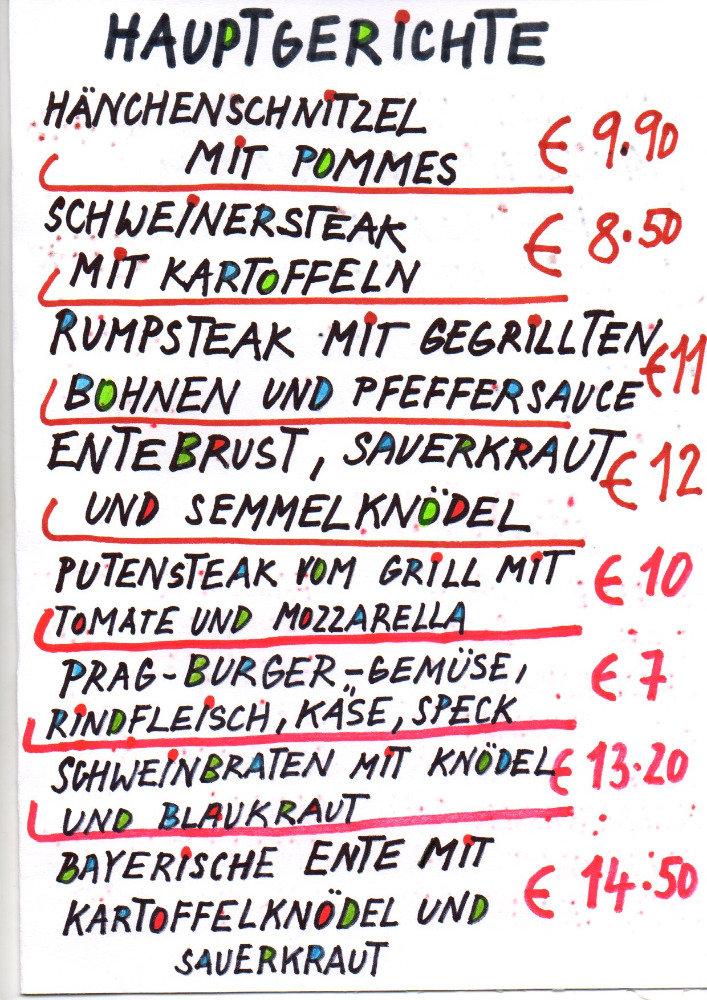 HAUPTGERICHTE
HÄNCHENSCHNITZEL
MIT POMMES € 9.90
SCHWEINERSTEAK € 8.50
MIT KARTOFFELN
RUMPSTEAK MIT GEGRILLTEN €11
BOHNEN UND PFEFFERSAUCE
ENTEBRUST, SAUERKRAUT € 12
UND SEMMELKNÖDEL
PUTENSTEAK VOM GRILL MIT € 10
TOMATE UND MOZZARELLA
PRAG-BURGER-GEMÜSE, € 7
RINDFLEISCH, KÄSE, SPECK
SCHWEINBRATEN MIT KNÖDEL € 13.20
UND BLAUKRAUT
BAYERISCHE ENTE MIT € 14.50
KARTOFFELKNÖDEL UND
SAUERKRAUT